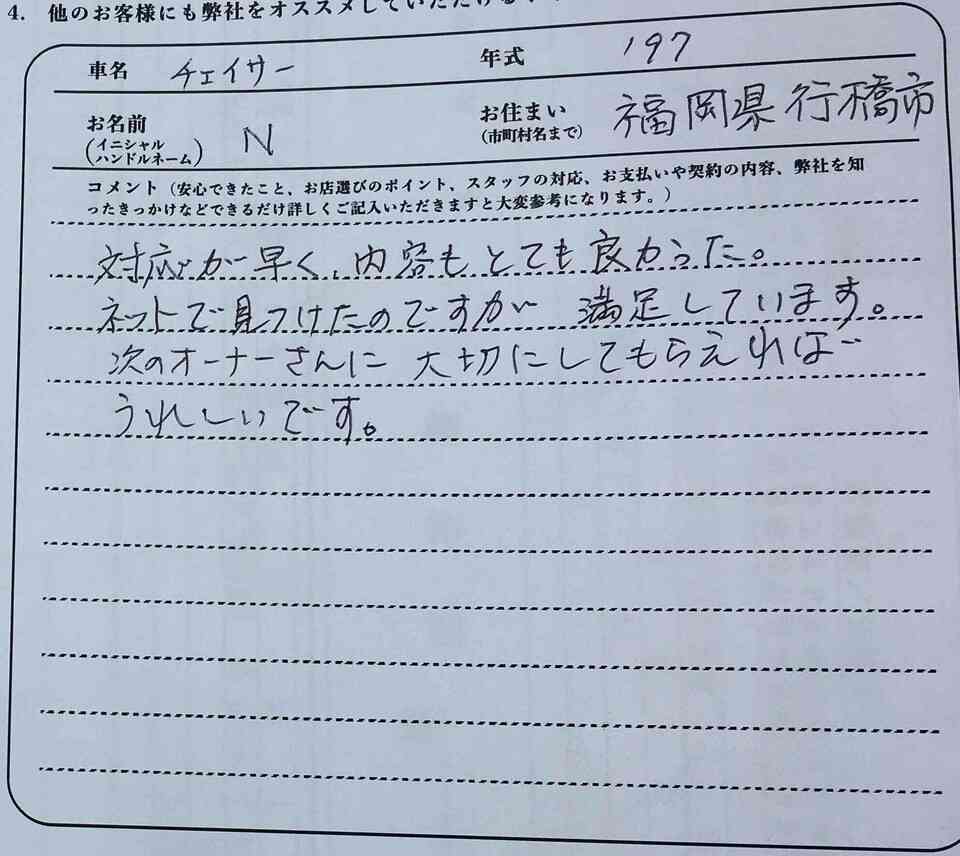 4. 他のお客様にも弊社をオススメしていただける
車名 チェイサー 年式 '97
お名前 (イニシャル ハンドルネーム) N お住まい (市町村名まで) 福岡県 行橋市
コメント（安心できたこと、お店選びのポイント、スタッフの対応、お支払いや契約の内容、弊社を知
ったきっかけなどできるだけ詳しくご記入いただきますと大変参考になります。）
対応が早く、内容もとても良かった。
ネットで見つけたのですが 満足しています。
次のオーナーさんに 大切にしてもらえれば
うれしいです。